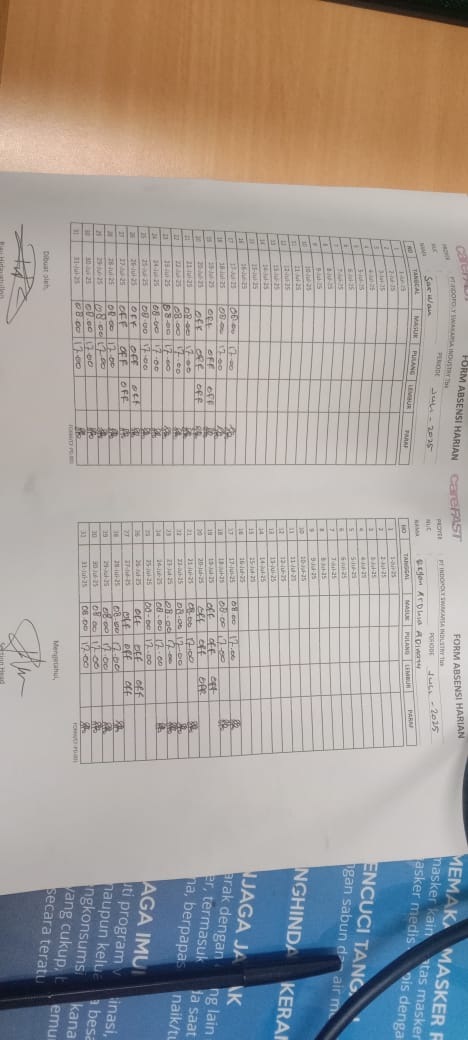 careFAST
FORM ABSENSI HARIAN
PROYEK PT INDOPOLY SWAKARSA INDUSTRY Tbk
NUC PERIODE JULI - 2025
NAMA Sarwan
NO TANGGAL MASUK PULANG LEMBUR PARAF
1 1-Jul-25
2 2-Jul-25
3 3-Jul-25
4 4-Jul-25
5 5-Jul-25
6 6-Jul-25
7 7-Jul-25
8 8-Jul-25
9 9-Jul-25
10 10-Jul-25
11 11-Jul-25
12 12-Jul-25
13 13-Jul-25
14 14-Jul-25
15 15-Jul-25
16 16-Jul-25
17 17-Jul-25 08.00 17.00
18 18-Jul-25 08.00 17.00
19 19-Jul-25 off off off
20 20-Jul-25 off off off
21 21-Jul-25 08.00 17.00
22 22-Jul-25 08.00 17.00
23 23-Jul-25 08.00 17.00
24 24-Jul-25 08.00 17.00
25 25-Jul-25 08.00 17.00
26 26-Jul-25 off off off
27 27-Jul-25 off off off
28 28-Jul-25 08.00 17.00
29 29-Jul-25 08.00 17.00
30 30-Jul-25 08.00 17.00
31 31-Jul-25 08.00 17.00
Dibuat oleh,
careFAST
FORM ABSENSI HARIAN
PROYEK PT INDOPOLY SWAKARSA INDUSTRY Tbk
NUC PERIODE JULI - 2025
NAMA
NO TANGGAL MASUK PULANG LEMBUR PARAF
1 1-Jul-25
2 2-Jul-25
3 3-Jul-25
4 4-Jul-25
5 5-Jul-25
6 6-Jul-25
7 7-Jul-25
8 8-Jul-25
9 9-Jul-25
10 10-Jul-25
11 11-Jul-25
12 12-Jul-25
13 13-Jul-25
14 14-Jul-25
15 15-Jul-25
16 16-Jul-25
17 17-Jul-25 08.00 17.00
18 18-Jul-25 08.00 17.00
19 19-Jul-25 off off off
20 20-Jul-25 off off off
21 21-Jul-25 08.00 17.00
22 22-Jul-25 08.00 17.00
23 23-Jul-25 08.00 17.00
24 24-Jul-25 08.00 17.00
25 25-Jul-25 08.00 17.00
26 26-Jul-25 off off off
27 27-Jul-25 off off off
28 28-Jul-25 08.00 17.00
29 29-Jul-25 08.00 17.00
30 30-Jul-25 08.00 17.00
31 31-Jul-25 08.00 17.00
Mengetahui,
Section Head
MEMAKAI MASKER
masker kain atas masker
masker medis
ENCUCI TANG
ngan sabun air m
NGHINDA KERA
NJAGA JA AK
arak dengan ng lain
er, termasuk a saat
na, berpapas naik/tu
AGA IMU
uti program v inasi,
naupun kelua a besa
ngkonsumsi kana
yang cukup, b emu
secara teratu